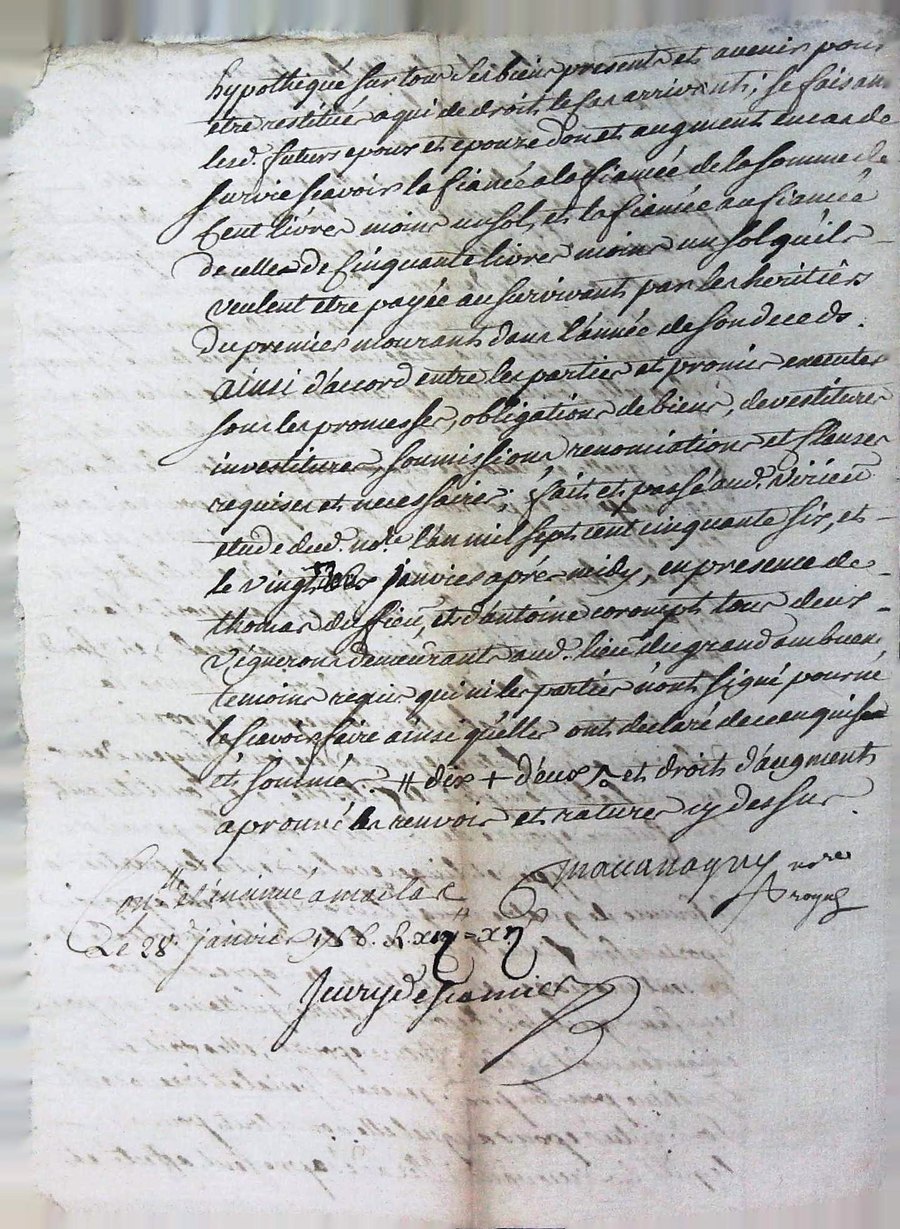 hypothequé sur tous ses biens presents et avenir pour
etre restituée a qui de droit le cas arrivant ; se faisant
lesd. futurs epoux et epouze don et augment en cas de
survie scavoir le fiancé a la fiancée de la somme de
Cent livres moins un sol, et la fiancée au fiancé
de celle de Cinquante livres moins un sol qu'ils
veulent etre payée au survivant par les heritiers
du premier mourant dans l'année de son deceds.
ainsi d'accord entre les parties et promis executer
sous les promesses, obligations de biens, devestitures
investitures soumissions renonciations et clauses
requises et necessaires ; fait et passé aud. Virieu
etude dud. no.re l'an mil sept cent cinquante six, et
le vingt janvier aprés midy, en presence de
thomas et d'antoine corompt tous deux
vignerons demeurants aud. lieu du grand
temoins requis qui ni les parties n'ont signé pour ne
le scavoir faire ainsi qu'elles ont declaré de ce enquises
et sommés. # dix + d'eux et droit d'augment
aprouvé les renvois et ratures cy dessus.
nore
royal
Con.llé et insinué a
Le 28 janvier 1756. R.